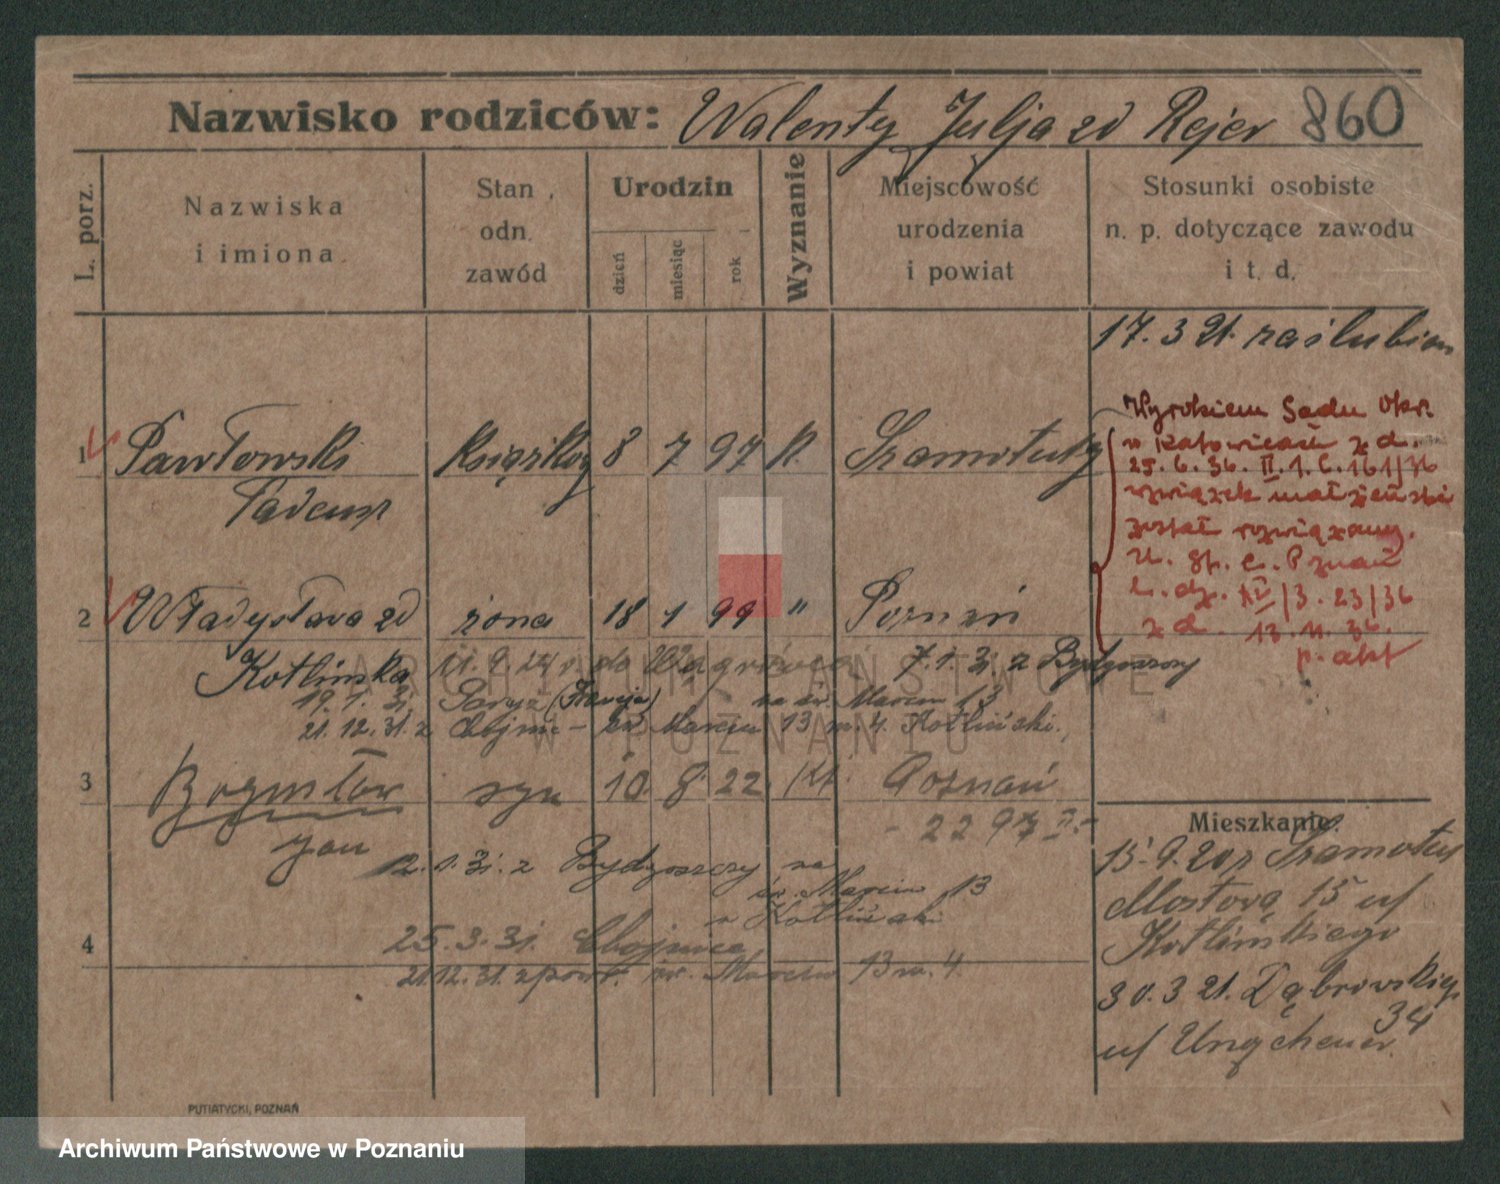 Nazwisko rodziców: Walenty Julja zd Rejer 860
L. porz.
Nazwiska i imiona
Stan odn. zawód
Urodzin
dzień
miesiąc
rok
Wyznanie
Miejscowość urodzenia i powiat
Stosunki osobiste n. p. dotyczące zawodu i t. d.
17. 3 21. zaślubion
1 Pawłowski Księżkow 8 7 97 k. Szamotuły
Tadeusz
Wyrokiem Sądu Okr.
w Katowicach z d.
25. 6. 36. II. 1. C. 161/36
związek małżeński
został rozwiązany.
U. St. C. Poznań
L. dz. XII/3. 23/36
z d. 13. 11. 36.
p. akt
2 Władysława zd żona 18 1 99 " Poznań
Kotlińska 11. 9. 24 do Wągrówca 7. 1. 31 z Bydgoszczy
19. 1. 31 Paryż (Francja) na św. Marcin 13
21. 12. 31. z Chojnic - św. Marcin 13 m. 4 Kotliński.
3 Bogusław syn 10 8 22 kt. Poznań
Jan
- 22 97 II. -
12. 1. 31. z Bydgoszczy na
św. Marcin 13
u Kotliński
4 25. 3. 31. Chojnice
21. 12. 31. z powr. św. Marcin 13 m. 4.
Mieszkanie:
15. 9. 20 z Szamotuł
Mostowa 15 u/
Kotlińskiego
30. 3 21. Dąbrowskieg
34
u/ Ungeheuer.
PUTIATYCKI, POZNAŃ
ARCHIWUM PAŃSTWOWE
W POZNANIU
Archiwum Państwowe w Poznaniu